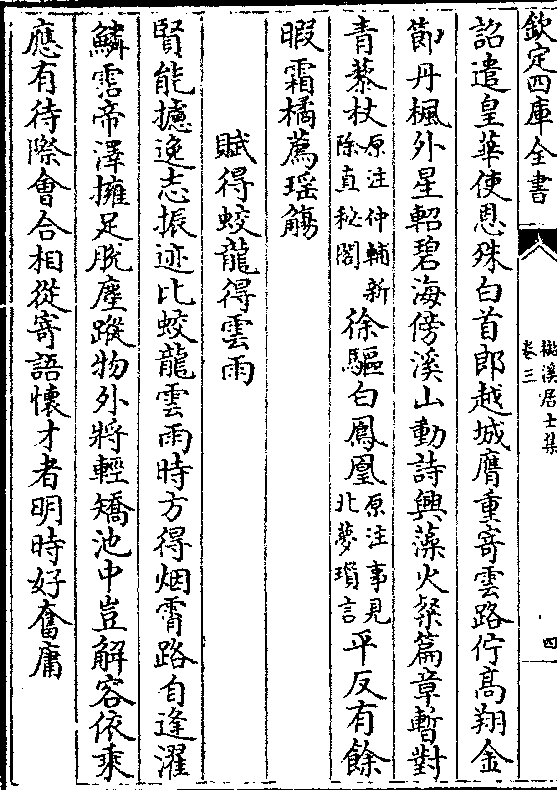 欽定四庫全書
檆溪居士集
卷三
四
詔遣皇華使恩殊白首郎越城膺重寄雲路佇高翔金
節丹楓外星軺碧海傍溪山動詩興藻火粲篇章暫對
青藜杖原注仲輔新除直秘閣徐驅白鳳凰原注事見北夢瑣言平反有餘
暇霜橘薦瑶觴
賦得蛟龍得雲雨
賢能攄逸志振迹比蛟龍雲雨時方得烟霄路自逢濯
鱗霑帝澤擁足脱塵蹤物外將輕矯池中豈解容依乗
應有待際會合相從寄語懐才者明時好奮庸